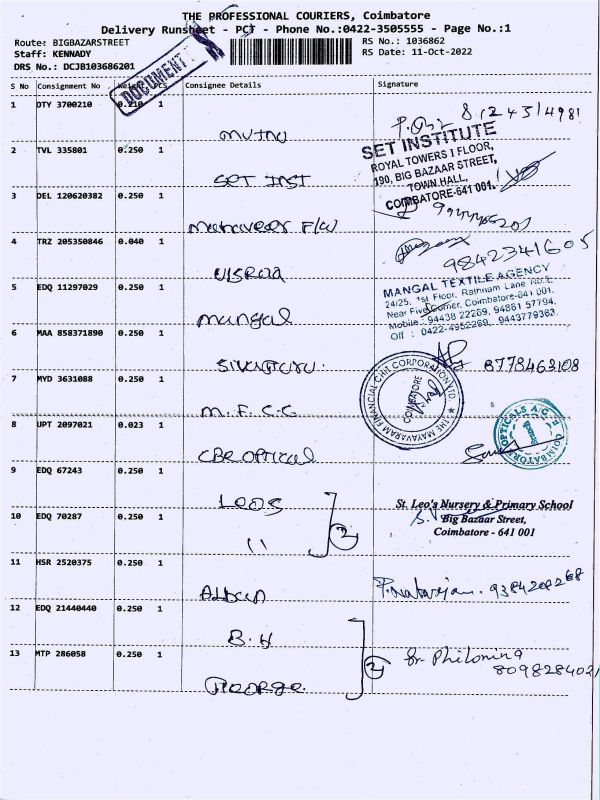 THE PROFESSIONAL COURIERS, Coimbatore
Delivery Runsheet - PCT - Phone No.:0422-3505555 - Page No.:1
Route: BIGBAZARSTREET
Staff: KENNADY
DRS No.: DCJB103686201
RS No.: 1036862
RS Date: 11-Oct-2022
DOCUMENT
S No Consignment No Weight PCS Consignee Details Signature
1 OTY 3700210 0.210 1
8124314981
2 TVL 335801 0.250 1
SET INST
SET INSTITUTE
ROYAL TOWERS I FLOOR,
190, BIG BAZAAR STREET,
TOWN HALL,
COIMBATORE-641 001.
3 DEL 120620382 0.250 1
Mahaveer F/W
4 TRZ 205350846 0.040 1
9842341605
5 EDQ 11297029 0.250 1
Mangal
MANGAL TEXTILE AGENCY
24/25, 1st Floor, Rathnam Lane
Near Five Corner, Coimbatore-641 001.
Mobile : 94438 22269, 94861 57794,
Off : 0422-4952269, 9443779363.
6 MAA 858371890 0.250 1
8778463108
7 MYD 3631088 0.250 1
M.F.C.C
THE MAYAVARAM FINANCIAL CHIT CORPORATION LTD.
COIMBATORE
8 UPT 2097021 0.023 1
CBE OPTICAL
OPTICALS
COIMBATORE
9 EDQ 67243 0.250 1
LEOS
2
St. Leo's Nursery & Primary School
Big Bazaar Street,
Coimbatore - 641 001
10 EDQ 70287 0.250 1
11
11 HSR 2520375 0.250 1
P. Natarajan. 9384208268
12 EDQ 21440440 0.250 1
B.H
2
13 MTP 286058 0.250 1
George
Sr Philomina
8098284021